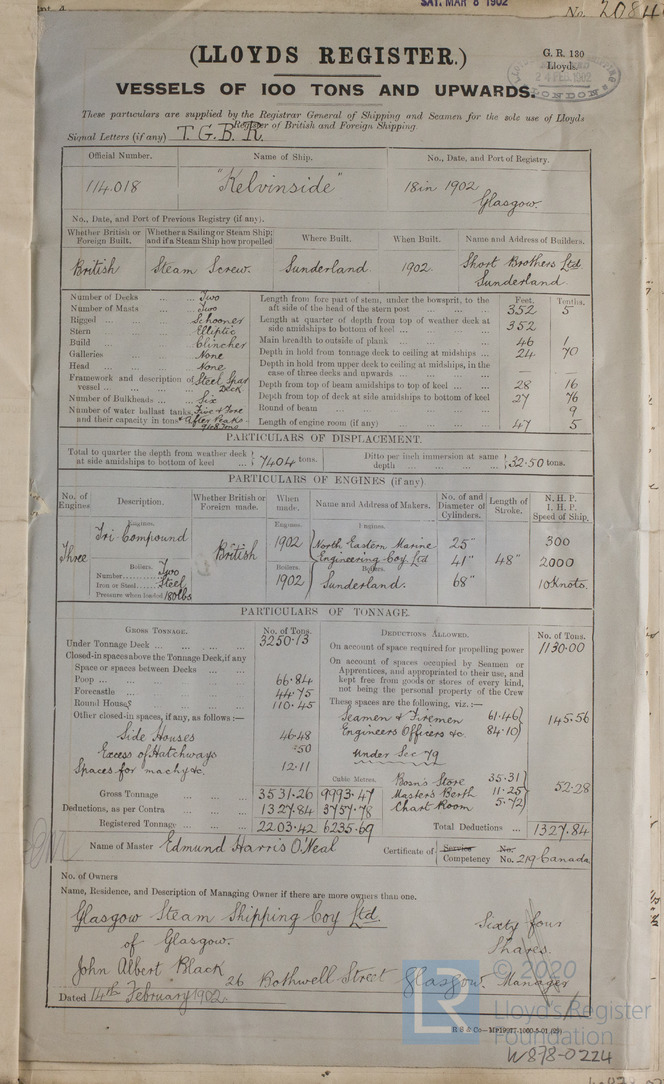 SAT. MAR 8 1902
No. 2084
(LLOYDS REGISTER.)
G. R. 130
Lloyds.
24 FEB. 1902
LONDON
VESSELS OF 100 TONS AND UPWARDS.
These particulars are supplied by the Registrar General of Shipping and Seamen for the sole use of Lloyds
Register of British and Foreign Shipping.
Signal Letters (if any) T. G. B. R.
Official Number. Name of Ship. No., Date, and Port of Registry.
114.018 "Kelvinside" 18 in 1902
Glasgow.
No., Date, and Port of Previous Registry (if any).
Whether British or Foreign Built. Whether a Sailing or Steam Ship; and if a Steam Ship how propelled Where Built. When Built. Name and Address of Builders.
British Steam Screw. Sunderland 1902 Short Brothers Ltd
Sunderland
Feet. Tenths.
Number of Decks ... ... Two Length from fore part of stem, under the bowsprit, to the aft side of the head of the stern post ... 352 5
Number of Masts ... Two
Rigged ... ... ... Schooner Length at quarter of depth from top of weather deck at side amidships to bottom of keel ... 352
Stern ... ... ... Elliptic
Build ... ... ... Clincher Main breadth to outside of plank ... 46 1
Galleries ... ... None Depth in hold from tonnage deck to ceiling at midships ... 24 70
Head ... ... ... None Depth in hold from upper deck to ceiling at midships, in the case of three decks and upwards ... — —
Framework and description of vessel ... ... Steel Spar Deck Depth from top of beam amidships to top of keel ... 28 16
Number of Bulkheads ... Six Depth from top of deck at side amidships to bottom of keel 27 76
Number of water ballast tanks, and their capacity in tons Five & Fore & After Peaks Round of beam ... 9
Length of engine room (if any) ... 47 5
PARTICULARS OF DISPLACEMENT.
Total to quarter the depth from weather deck at side amidships to bottom of keel ... 7404 tons. Ditto per inch immersion at same depth ... 32.50 tons.
PARTICULARS OF ENGINES (if any).
No. of Engines Description. Whether British or Foreign made. When made. Name and Address of Makers. No. of and Diameter of Cylinders. Length of Stroke. N. H. P. I. H. P. Speed of Ship.
Engines. Engines. Engines.
Tri Compound 1902 North Eastern Marine 25" 300
Three British Engineering Coy. Ltd 41" 48" 2000
Boilers. Boilers. Boilers.
Number ... Two
Iron or Steel ... Steel 1902 Sunderland. 68" 10 Knots.
Pressure when loaded 180 lbs
PARTICULARS OF TONNAGE.
GROSS TONNAGE. No. of Tons. DEDUCTIONS ALLOWED. No. of Tons.
Under Tonnage Deck ... 3250.13 On account of space required for propelling power 1130.00
Closed-in spaces above the Tonnage Deck, if any On account of spaces occupied by Seamen or
Space or spaces between Decks ... Apprentices, and appropriated to their use, and
Poop ... 66.84 kept free from goods or stores of every kind,
Forecastle ... 44.75 not being the personal property of the Crew
Round Houses 110.45 These spaces are the following, viz. :—
Other closed-in spaces, if any, as follows :— Seamen & Firemen 61.46 145.56
Side Houses 46.48 Engineers Officers &c. 84.10
Excess of Hatchways .50 Under Sec 79
Spaces for machy &c. 12.11
Cubic Metres. Bosn's Store 35.31
Gross Tonnage ... 3531.26 9993.47 Masters Berth 11.25 52.28
Deductions, as per Contra ... 1327.84 3757.78 Chart Room 5.72
Registered Tonnage ... 2203.42 6235.69 Total Deductions ... 1327.84
Name of Master Edmund Harris O'Neal Certificate of Service No. Competency No. 219 Canada
No. of Owners
Name, Residence, and Description of Managing Owner if there are more owners than one.
Glasgow Steam Shipping Coy Ltd. Sixty four
of Glasgow. Shares.
John Albert Black 26 Bothwell Street Glasgow. Manager
Dated 14th February 1902.
© 2020
LR
Lloyd's Register
Foundation
W878-0224